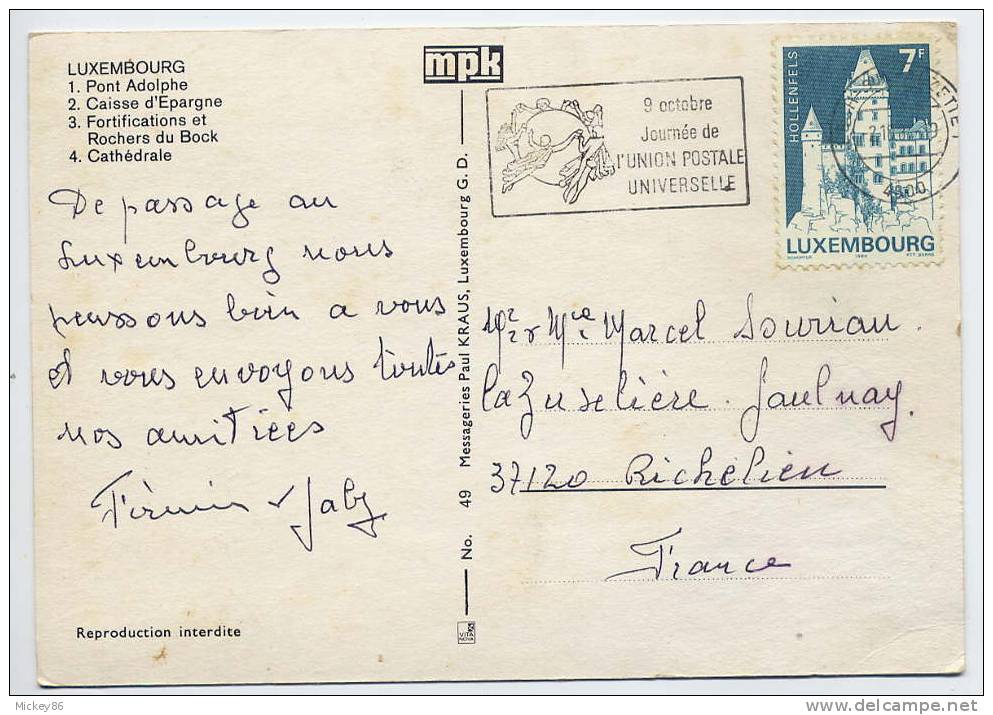 LUXEMBOURG
1. Pont Adolphe
2. Caisse d'Epargne
3. Fortifications et
Rochers du Bock
4. Cathédrale
mpk
9 octobre
Journée de
l'UNION POSTALE
UNIVERSELLE
HOLLENFELS
7F
LUXEMBOURG
De passage au
Luxembourg nous
pensons bien a vous
et vous envoyons toutes
nos amitiées
Firmin & Gaby
No. 49 Messageries Paul KRAUS, Luxembourg G. D.
VITA NOVA
Mr & Me Marcel Sourian.
La Zuselière. Jaulnay.
37120 Richelieu
France
Reproduction interdite
Mickey86
www.delcampe.net